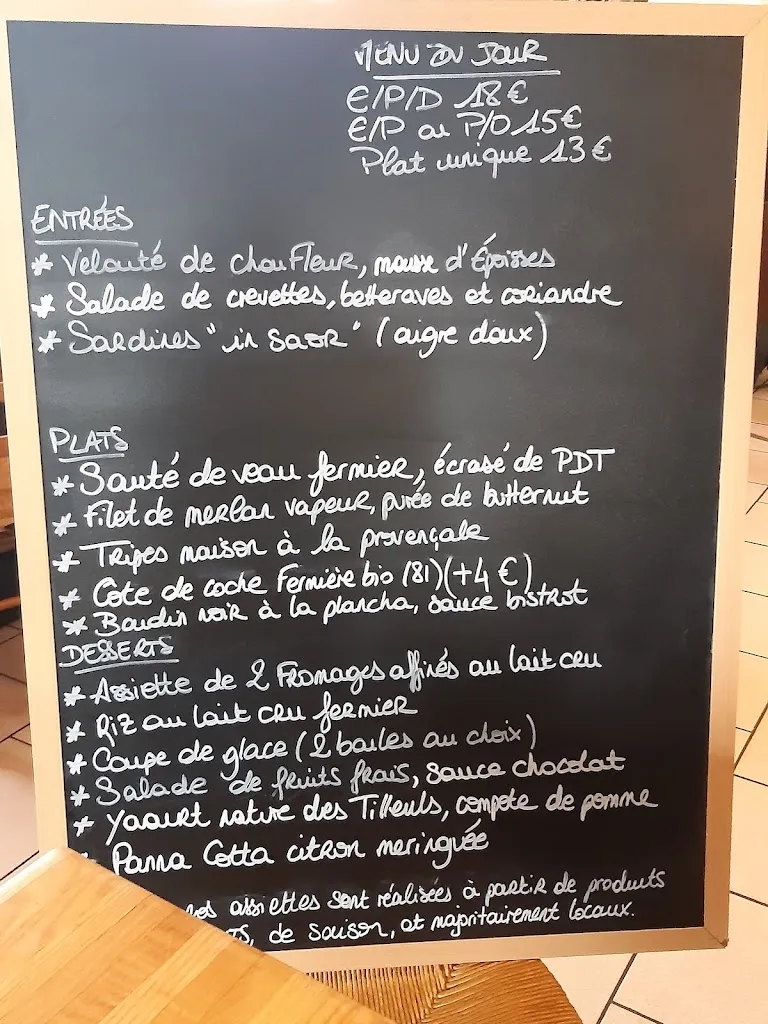 MENU DU JOUR
E/P/D 18€
E/P ou P/D 15€
Plat unique 13€
ENTRÉES
* Velouté de chou fleur, mousse d'Époisses
* Salade de crevettes, betteraves et coriandre
* Sardines "in saor" (aigre doux)
PLATS
* Sauté de veau fermier, écrasé de PDT
* Filet de merlan vapeur, purée de butternut
* Tripes maison à la provençale
* Cote de coche Fermière bio (81) (+4 €)
* Boudin noir à la plancha, sauce bistrot
DESSERTS
* Assiette de 2 Fromages affinés au lait cru
* Riz au lait cru fermier
* Coupe de glace (2 boules au choix)
* Salade de fruits frais, sauce chocolat
* Yaourt nature des Tilleuls, compote de pomme
Panna Cotta citron meringuée
assiettes sont réalisées à partir de produits
de saison, et majoritairement locaux.